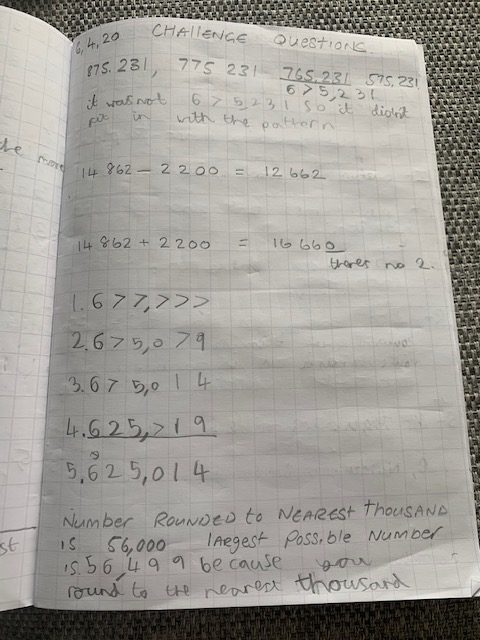 6,4,20 CHAllENGE QUESTIONS
875.231, 775 231 765,231 575,231
6 7 5,231
it was not 6 7 5,231 so it didnt
fit in with the pattern
the more
14 862 - 2 2 00 = 12 662
14 862 + 2200 = 16 660
theres no 2.
1.6 7 7,7 7 7
2.6 7 5,0 7 9
3.6 7 5,0 1 4
4.6 2 5,7 1 9
5,6 2 5,0 1 4
Number ROUNDED to NEAREST thOUSAND
st
is 56,000 lAEgest Possible Number
is 56,499 because you
round to the nearest thousand